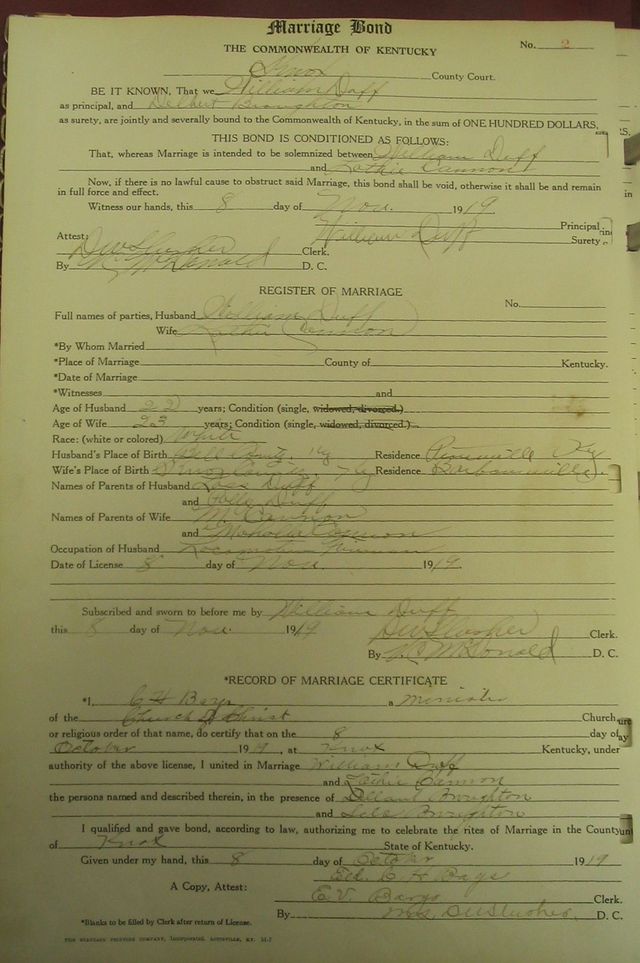 Marriage Bond
THE COMMONWEALTH OF KENTUCKY
No. 2
Knox County Court.
BE IT KNOWN, That we William Duff
as principal, and Delbert Broughton
as surety, are jointly and severally bound to the Commonwealth of Kentucky, in the sum of ONE HUNDRED DOLLARS,
THIS BOND IS CONDITIONED AS FOLLOWS:
That, whereas Marriage is intended to be solemnized between William Duff
and Cannon
Now, if there is no lawful cause to obstruct said Marriage, this bond shall be void, otherwise it shall be and remain
in full force and effect.
Witness our hands, this 8 day of Nov. 1919
William Duff Principal
Attest: Surety
D W Slusher Clerk.
By McDonald D. C.
REGISTER OF MARRIAGE
No.
Full names of parties, Husband William Duff
Wife Cannon
*By Whom Married
*Place of Marriage County of Kentucky.
*Date of Marriage
*Witnesses and
Age of Husband 22 years; Condition (single, widowed, divorced.)
Age of Wife 23 years; Condition (single, widowed, divorced.)
Race: (white or colored) White
Husband's Place of Birth Bell County, Ky Residence Pineville Ky
Wife's Place of Birth Knox County, Ky Residence Barbourville
Names of Parents of Husband Duff
and Polly Duff
Names of Parents of Wife Cannon
and Cannon
Occupation of Husband Locomotive Fireman
Date of License 8 day of Nov. 1919.
Subscribed and sworn to before me by William Duff
this 8 day of Nov. 1919
D W Slusher Clerk.
By McDonald D. C.
*RECORD OF MARRIAGE CERTIFICATE
*I, C H Bays a minister
of the Church of Christ Church
or religious order of that name, do certify that on the 8 day of
October 1919, at Knox Kentucky, under
authority of the above license, I united in Marriage William Duff
and Cannon
the persons named and described therein, in the presence of Broughton
and Broughton
I qualified and gave bond, according to law, authorizing me to celebrate the rites of Marriage in the County
of Knox State of Kentucky.
Given under my hand, this 8 day of October 1919
C H Bays
A Copy, Attest:
E. V. Clerk.
By Mrs. D W Slusher. D. C.
*Blanks to be filled by Clerk after return of License.
THE STANDARD PRINTING COMPANY, INCORPORATED, LOUISVILLE, KY.